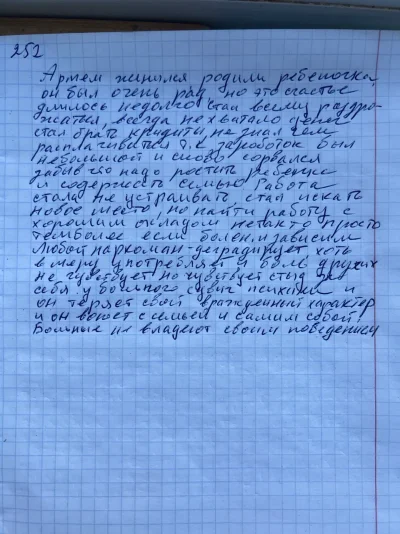 252
Артем жинился родили ребеночка,
он был очень рад но это счастье
длилось недолго стал всему раздро-
жаться, всегда не хватало денег
стал брать кридиты, не знал чем
расплачиватся т.к заработок был
небольшой и снова сорвался
забыв что надо ростить ребенка
и содержать семью. Работа
стала не устраивать, стал искать
новое место, но найти работу с
хорошим окладом не так то просто
темболее если болен и зависим
Любой наркоман-деградирует хоть
в меру употребляет и боль других
не чувствует но чувствует стыд
себя у больного сдвиг психики и
он теряет свой вражденный характер
и он воюет с семьей и самим собой.
Больные не владеют своим поведением